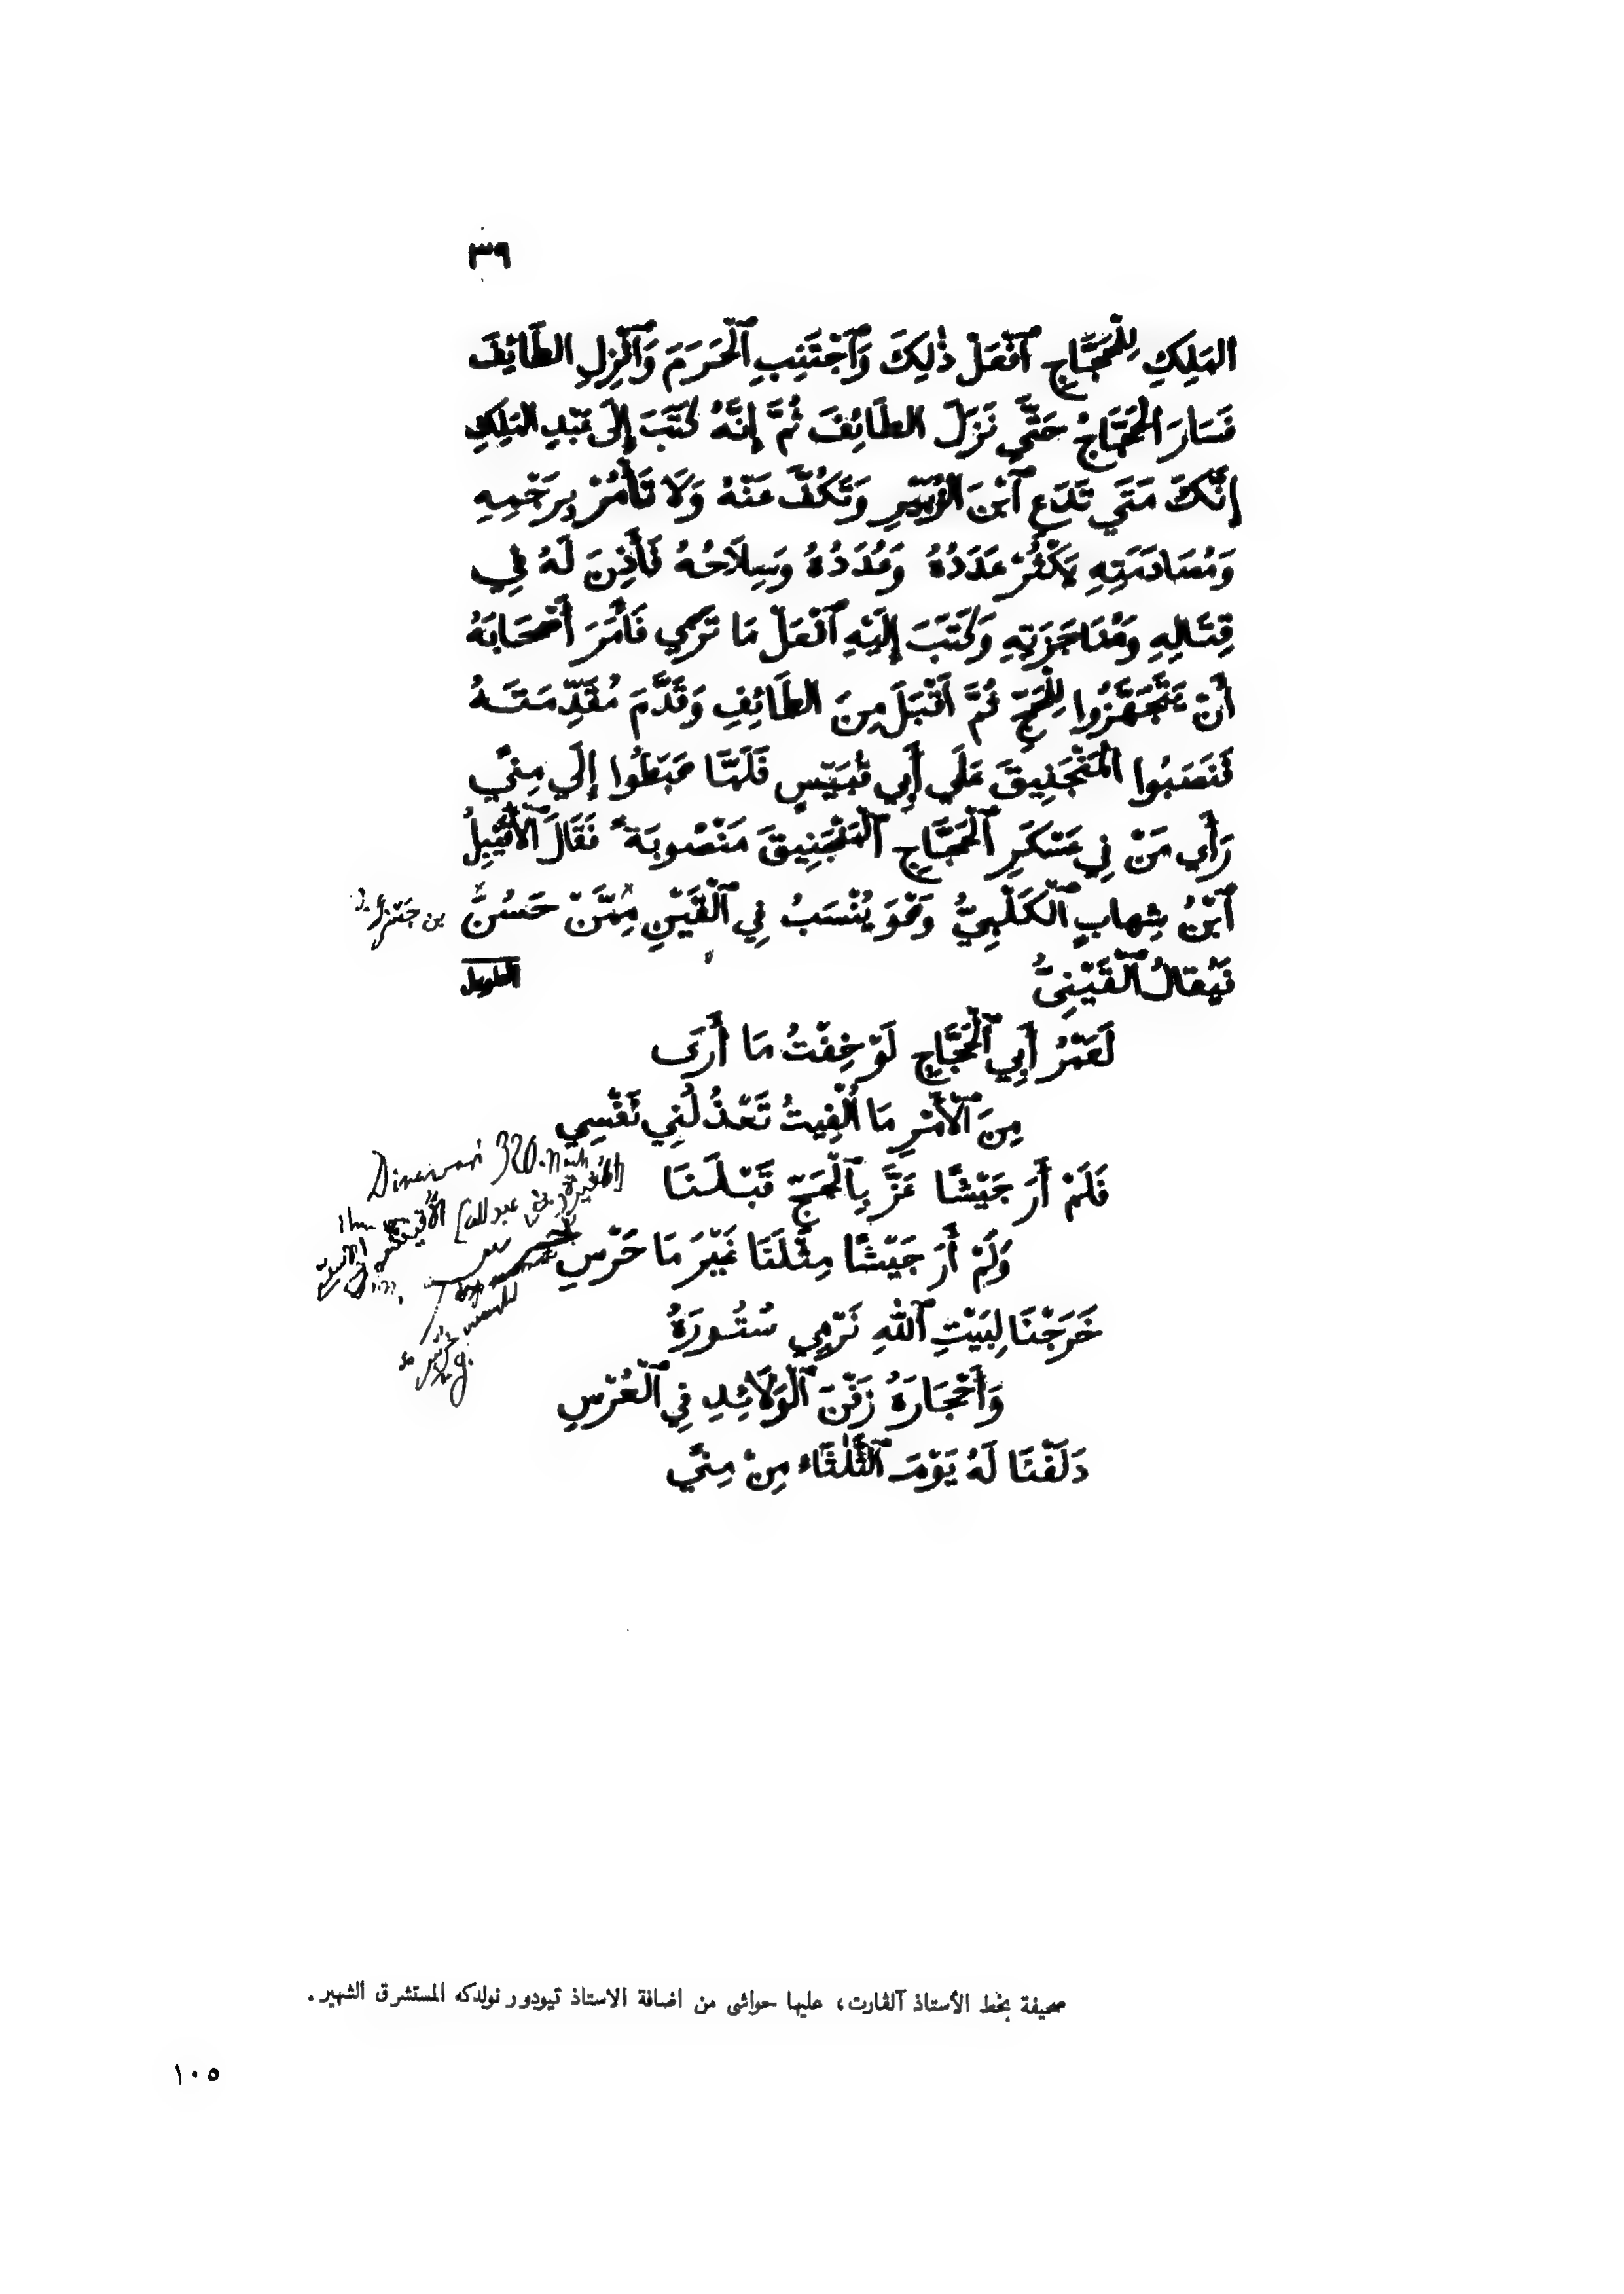 ٣٩
المَلِكِ لِلْحَجَّاجِ ٱفْعَلْ ذٰلِكَ وَٱجْتَنِبِ ٱلْحَرَمَ وَٱنْزِلِ الطَّائِفَ
فَسَارَ الْحَجَّاجُ حَتَّي نَزَلَ الطَّائِفَ ثُمَّ إِنَّهُ كَتَبَ إِلَى عَبْدِ المَلِكِ
إِنَّكَ مَتَي تَدَعِ ٱبْنَ الزُّبَيْرِ وَتَكُفَّ عَنْهُ وَلَا تَأْمُرْ بِرَجْمِهِ
وَمُصَادَمَتِهِ يَكْثُرْ عَدَدُهُ وَعُدَدُهُ وَسِلَاحُهُ فَأْذَنْ لَهُ فِي
قِتَالِهِ وَمُنَاجَزَتِهِ وَكَتَبَ إِلَيْهِ ٱفْعَلْ مَا تَرَي فَأَمَرَ أَصْحَابَهُ
أَنْ يَتَجَهَّزُوا لِلْحَجِّ ثُمَّ أَقْبَلَ مِنَ الطَّائِفِ وَقَدَّمَ مُقَدِّمَتَهُ
فَنَصَبُوا المَنْجَنِيقَ عَلَي أَبِي قُبَيْسٍ فَلَمَّا هَبَطُوا إِلَي مِنًي
رَأَي مَنْ فِي عَسْكَرِ ٱلْحَجَّاجِ ٱلْمَنْجَنِيقَ مَنْصُوبَةً فَقَالَ ٱلْأُقَيْبِلُ
ٱبْنُ شِهابٍ ٱلْكَلْبِيُّ وَهْوَ يُنْسَبُ فِي ٱلْقَيْنِ مِمَّنْ حَسُنَ
فَيُقالُ ٱلْقَيْنِيُّ الطويل
لَعَمْرُ أَبِي ٱلْحَجَّاجِ لَوْ خِفْتُ مَا أَرَى
مِنَ ٱلْأَمْرِ مَا أُلْفِيتُ تَعْذُلُنِي نَفْسِي
Dinawari 320.
فَلَمْ أَرَ جَيْشًا غَزَّ بِٱلْحَجِّ قَبْلَنَا
وَلَمْ أَرَ جَيْشًا مِثْلَنَا غَيْرَ مَا خَرْسِ
خَرَجْنَا لِبَيْتِ ٱللهِ نَرْمِي سُتُورَهُ
وَأَحْجَارَهُ زَفْنَ ٱلْوَلَائِدِ فِي ٱلْعُرْسِ
دَلَفْنَا لَهُ يَوْمَ ٱلثَّلٰثَاءِ مِنْ مِنًي
صحيفة بخط الأستاذ آلفارت، عليها حواشى من اضافة الاستاذ تيودور نولدكه المستشرق الشهير.
١٠٥